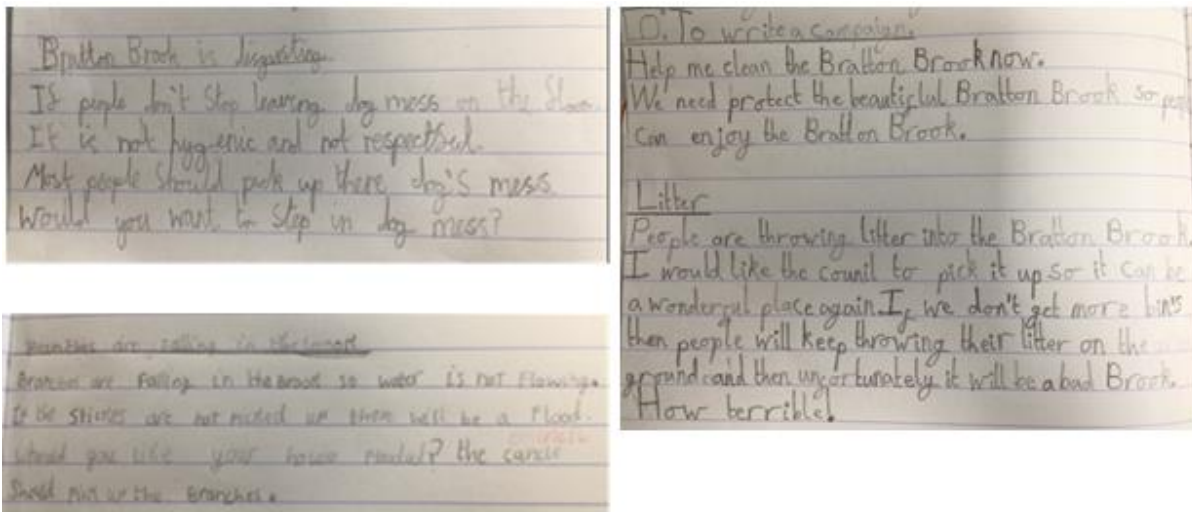 Bratton Brook is disgusting.
If people don't stop leaving dog mess on the
It is not hygenic and not
Most people should pick up there dog's mess
would you want to step in dog mess?
are falling in
Branches are Falling in the Brook so water is not Flowing.
If the are not up there will be a Flood.
would you like your house the
Should the Branches.
O. To write a campaign.
Help me clean the Bratton Brook now.
We need protect the beautiful Bratton Brook so
can enjoy the Bratton Brook.
Litter
People are throwing litter into the Bratton Brook.
I would like the counil to pick it up so it can be
a wonderful place again. If we don't get more bin's
then people will keep throwing their litter on the
ground and then unfortunately it will be a bad Brook.
How terrible!